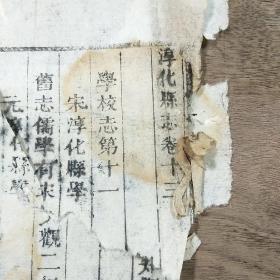 淳化縣志卷十三
學校志第十一
宋淳化縣學
舊志儒學有宋大觀二
元淳化縣學